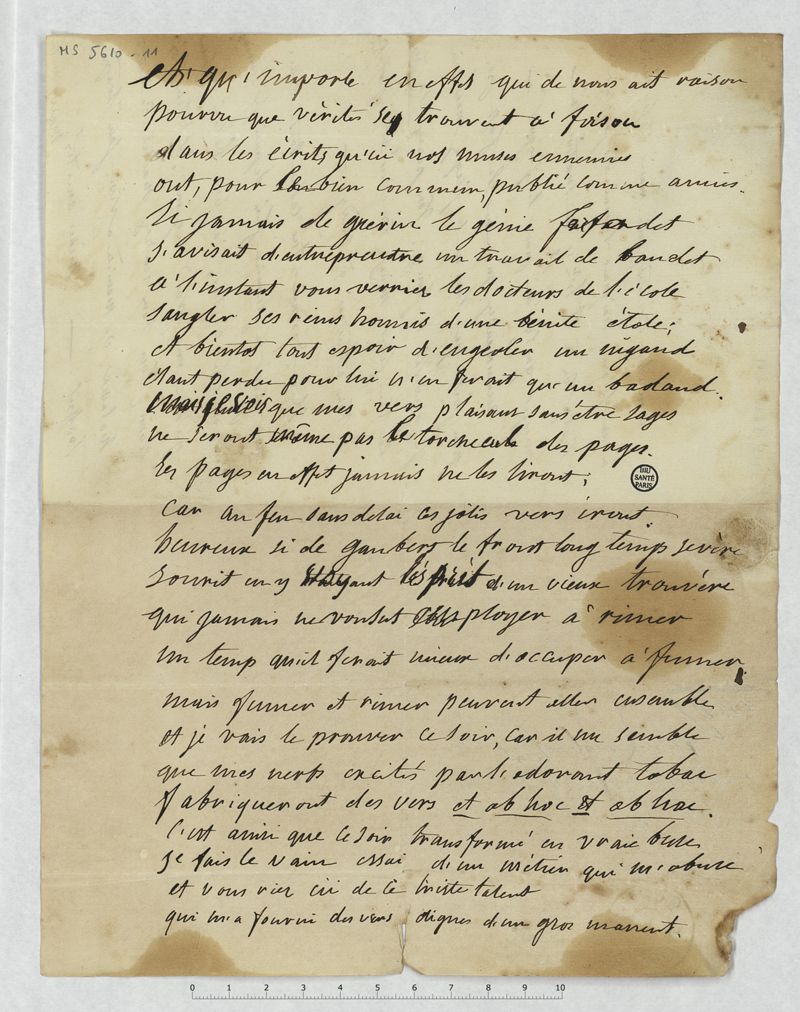 MS 5610-11
eh! qu'importe en effet qui de nous ait raison
pourvu que vérités se trouvent à foison
dans les écrits qu'ici nos muses ennemies
ont, pour le bien commun, publié comme amies.
Si jamais de guérin le génie
s'avisait d'entreprendre un travail de baudet
à l'instant vous verriez les docteurs de l'école
sangler ses reins hounis d'une bénite étole;
et bientot tout espoir d'engeoler un nigaud
étant perdu pour lui n'en ferait qu'un badaud.
que mes vers plaisant sans être sages
ne seront même pas le torchecul des pages.
les pages en effet jamais ne les liront;
BIU SANTÉ PARIS
car au feu sans delai ces jolis vers iront
heureux si de gaubert le front long temp sevère
sourit en y voyant l'esprit d'un vieux trouvère
qui jamais ne voulut employer à rimer
un temp qu'il ferait mieux d'occuper à fumer
mais fumer et rimer peuvent aller ensemble
et je vais le prouver ce soir, car il me semble
que mes nerfs excités par l'odorant tabac
fabriqueront des vers et ab hoc et ab hac.
c'est ainsi que ce soir transformé en vraie buse
je fais le vain essai d'un métier qui m'abuse
et vous riez ici de ce triste talent
qui m'a fourni des vers dignes d'un gros manent.
0 1 2 3 4 5 6 7 8 9 10